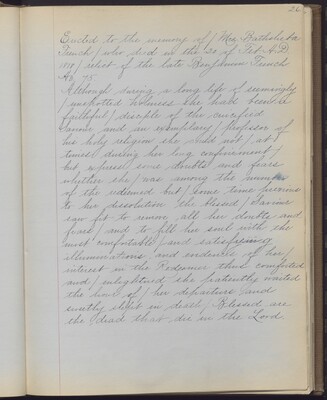 26
Erected to the memory of / Mrs Bathsheba
French / who died in the 20 of Feb. A.D
/ relict of the late Benjamin French
75
Although during a long life of seemingly
/ unspotted holiness she had been a
faithful / disciple of the crucified
Savior and an exemplary / professor of
his holy religion she could not / at
times during her long confinement /
but express some doubts and fears
whether she / was among the number
of the redeemed but / some time previous
to her dissolution the blessed / Saviour
saw fit to remove all her doubts and
fears / and to fill her soul with the
most comfortable / and satisfying
illuminations and evidences of her /
interest in the Redeemer thus comforted
and / enlightened she patiently waited
the hour of / her departure and
sweetly slept in death / Blessed are
the / dead that die in the Lord.